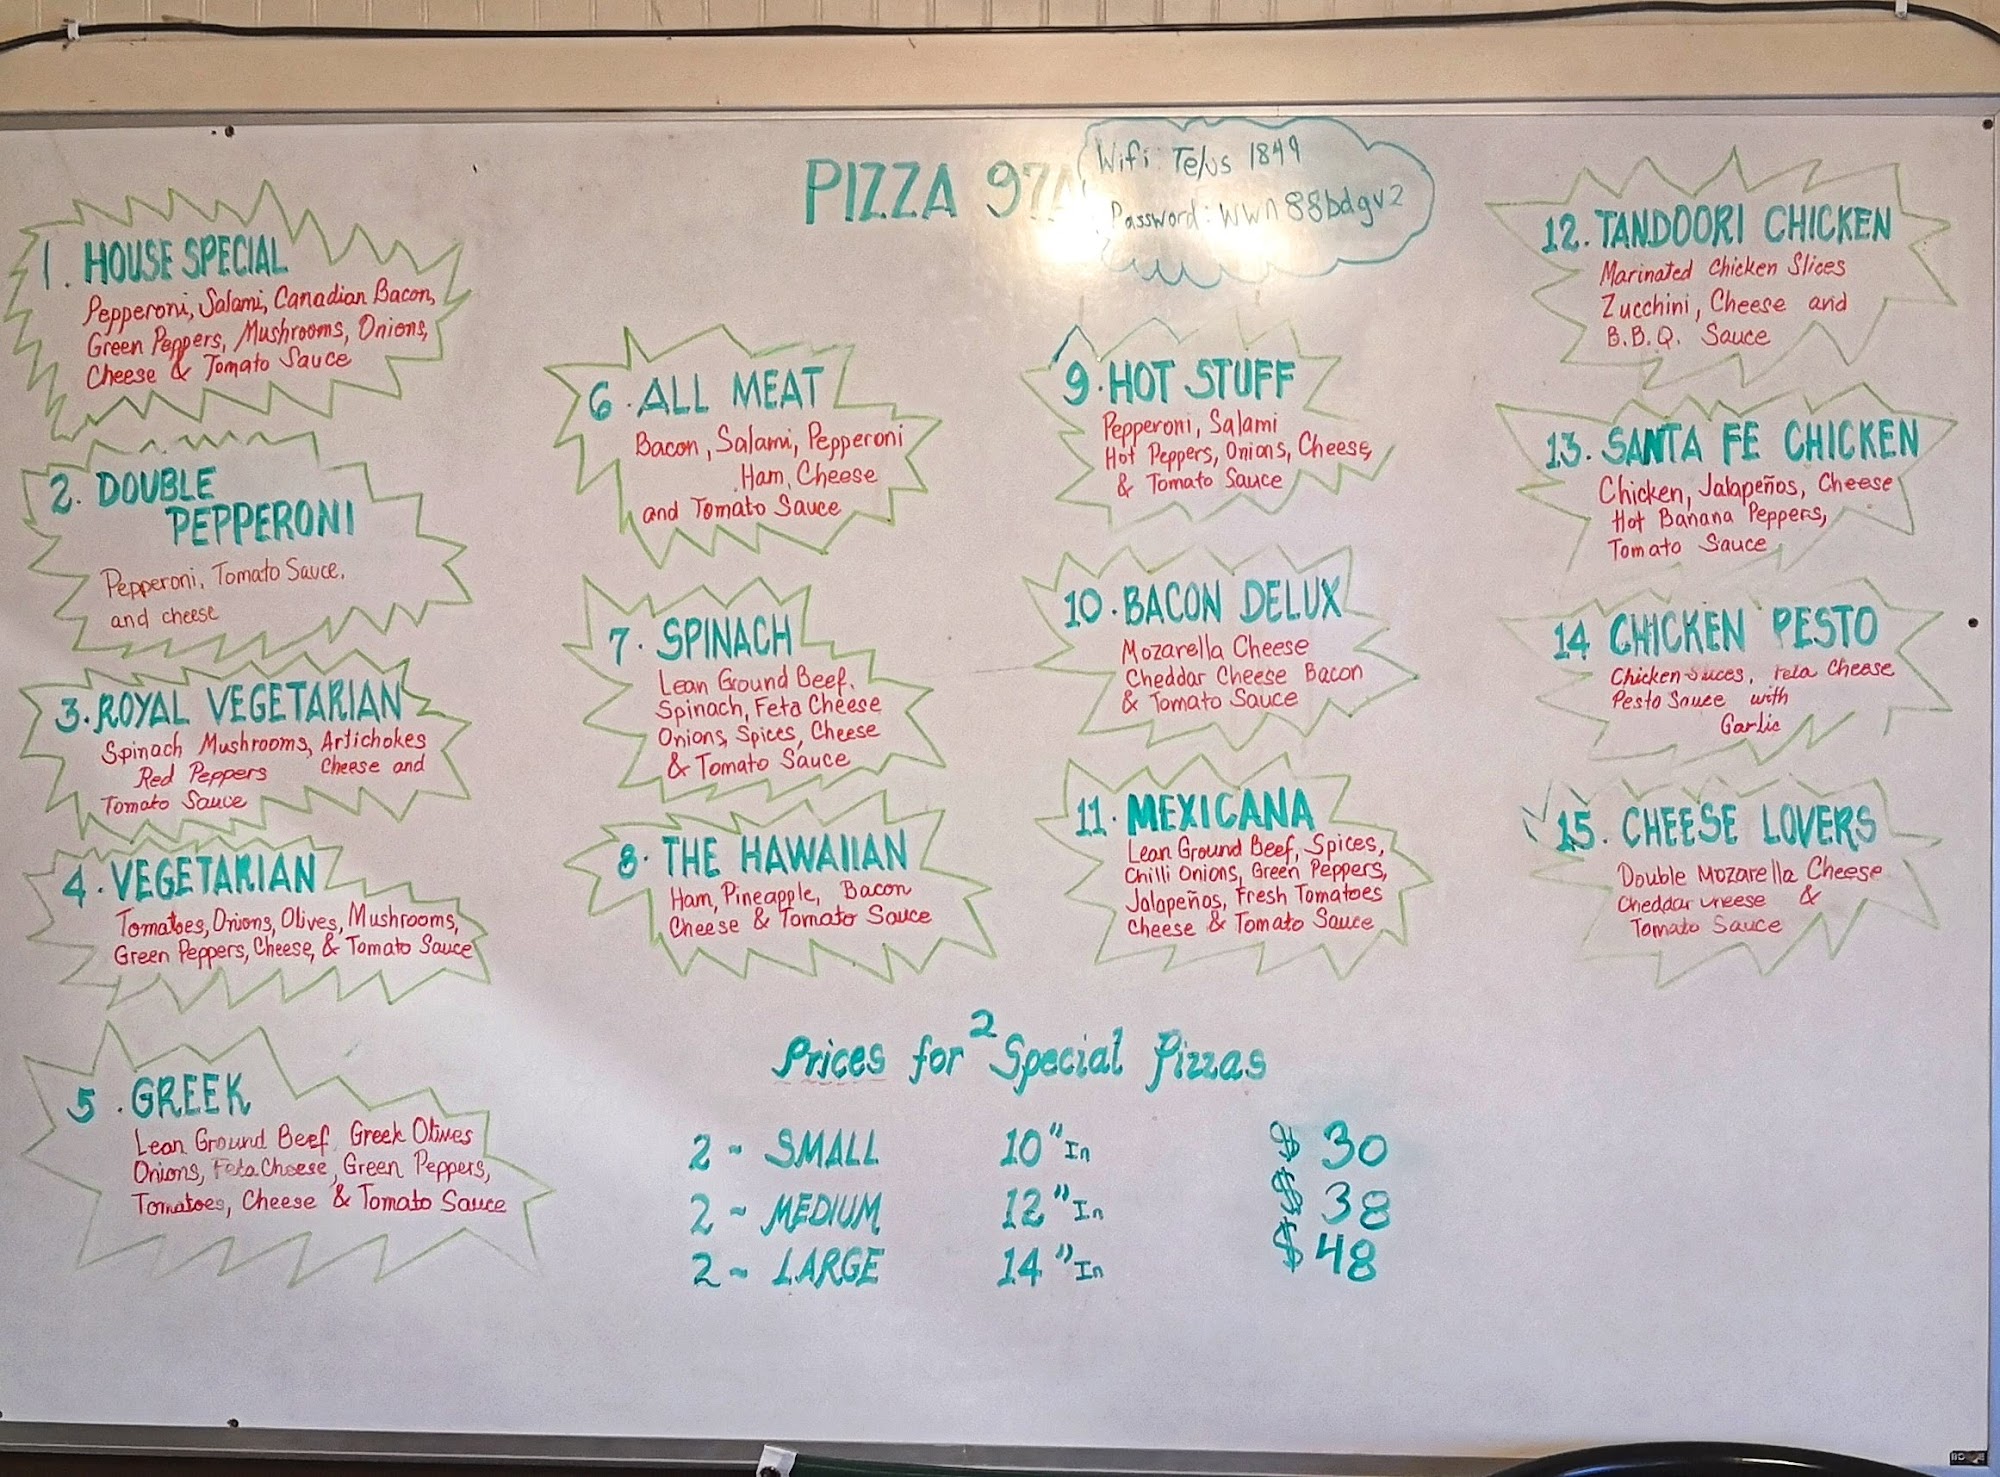 PIZZA 97
Wifi: Telus 1849
Password: wwn88bdgv2
1. HOUSE SPECIAL
Pepperoni, Salami, Canadian Bacon,
Green Peppers, Mushrooms, Onions,
Cheese & Tomato Sauce
2. DOUBLE
PEPPERONI
Pepperoni, Tomato Sauce,
and cheese
3. ROYAL VEGETARIAN
Spinach Mushrooms, Artichokes
Red Peppers Cheese and
Tomato Sauce
4. VEGETARIAN
Tomatoes, Onions, Olives, Mushrooms,
Green Peppers, Cheese, & Tomato Sauce
5. GREEK
Lean Ground Beef, Greek Olives
Onions, Feta Cheese, Green Peppers,
Tomatoes, Cheese & Tomato Sauce
6. ALL MEAT
Bacon, Salami, Pepperoni
Ham, Cheese
and Tomato Sauce
7. SPINACH
Lean Ground Beef,
Spinach, Feta Cheese
Onions, Spices, Cheese
& Tomato Sauce
8. THE HAWAIIAN
Ham, Pineapple, Bacon
Cheese & Tomato Sauce
9. HOT STUFF
Pepperoni, Salami
Hot Peppers, Onions, Cheese,
& Tomato Sauce
10. BACON DELUX
Mozarella Cheese
Cheddar Cheese Bacon
& Tomato Sauce
11. MEXICANA
Lean Ground Beef, Spices,
Chilli Onions, Green Peppers,
Jalapeños, Fresh Tomatoes
Cheese & Tomato Sauce
12. TANDOORI CHICKEN
Marinated Chicken Slices
Zucchini, Cheese and
B.B.Q. Sauce
13. SANTA FE CHICKEN
Chicken, Jalapeños, Cheese
Hot Banana Peppers,
Tomato Sauce
14 CHICKEN PESTO
Chicken Slices, Feta Cheese
Pesto Sauce with
Garlic
15. CHEESE LOVERS
Double Mozarella Cheese
Cheddar Cheese &
Tomato Sauce
Prices for 2 Special Pizzas
2 - SMALL 10" In $ 30
2 - MEDIUM 12" In $ 38
2 - LARGE 14" In $ 48